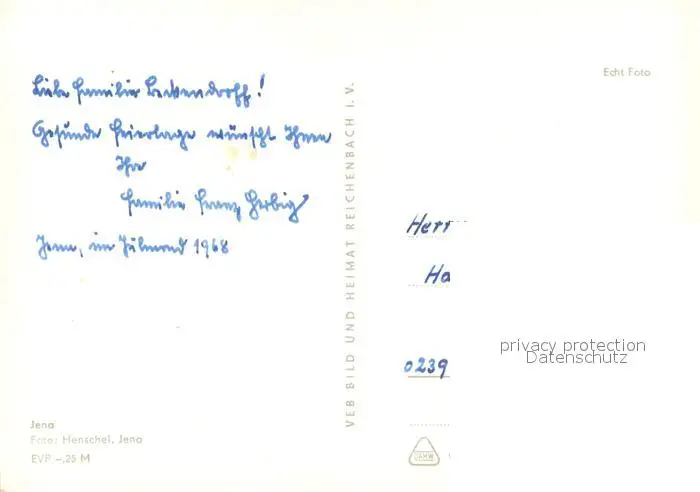 Liebe Familie Beckendorff!
Gesunde Feiertage wünscht Ihnen
Ihre
Familie Franz Herbig
Jena, im Julmond 1968
Jena
Foto: Henschel, Jena
EVP -,25 M
VEB BILD UND HEIMAT REICHENBACH I. V.
Echt Foto
Herr
Ha
0239
privacy protection
Datenschutz